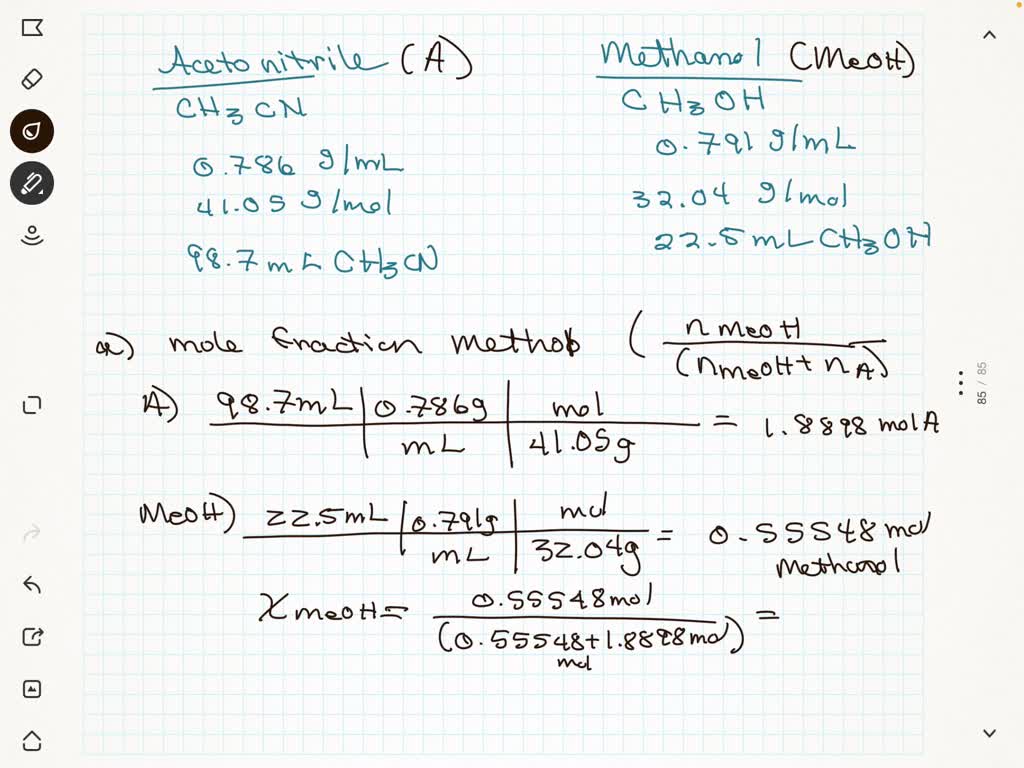 Acetonitrile (A)
CH3CN
0.786 g/mL
41.05 g/mol
98.7 mL CH3CN
Methanol (MeOH)
CH3OH
0.791 g/mL
32.04 g/mol
22.5 mL CH3OH
a) mole fraction methol ( n MeOH / (nMeOH + nA)
A) 98.7mL | 0.786g | mol = 1.8898 mol A
mL | 41.05g
MeOH) 22.5mL | 0.791g | mol = 0.55548 mol
mL | 32.04g Methanol
X MeOH = 0.55548mol =
(0.55548 + 1.8898 mol)
mol
85 / 85